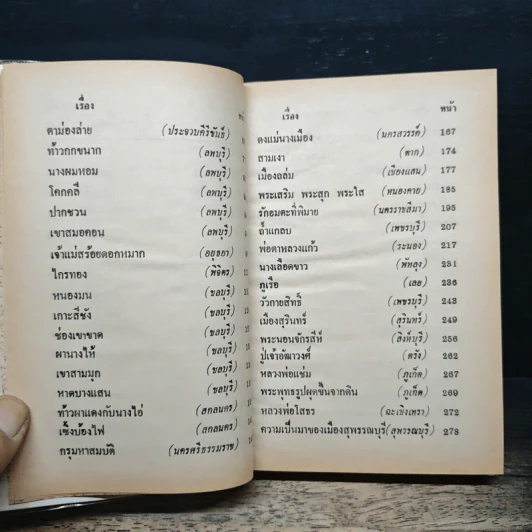 เรื่อง
ตาม่องล่าย (ประจวบคีรีขันธ์)
ท้าวกกขนาก (ลพบุรี)
นางผมหอม (ลพบุรี)
โคกคลี (ลพบุรี)
ปากชวน (ลพบุรี)
เขาสมอคอน (ลพบุรี)
เจ้าแม่สร้อยดอกหมาก (อยุธยา)
ไกรทอง (พิจิตร)
หนองมน (ชลบุรี)
เกาะสีชัง (ชลบุรี)
ช่องเขาขาด (ชลบุรี)
ผานางไห้ (ชลบุรี)
เขาสามมุก (ชลบุรี)
หาดบางแสน (ชลบุรี)
ท้าวผาแดงกับนางไอ่ (สกลนคร)
เซิ้งบ้องไฟ (สกลนคร)
กรุมหาสมบัติ (นครศรีธรรมราช)
เรื่อง หน้า
ดงแม่นางเมือง (นครสวรรค์) 167
สามเงา (ตาก) 174
เมืองถล่ม (เชียงแสน) 177
พระเสริม พระสุก พระใส (หนองคาย) 185
รักอมตะที่พิมาย (นครราชสีมา) 195
ถ้ำแกลบ (เพชรบุรี) 207
พ่อตาหลวงแก้ว (ระนอง) 217
นางเลือดขาว (พัทลุง) 231
ภูเรือ (เลย) 236
วัวกายสิทธิ์ (เพชรบุรี) 243
เมืองสุรินทร์ (สุรินทร์) 249
พระนอนจักรสีห์ (สิงห์บุรี) 256
ปู่เจ้าอัฒาวงศ์ (ตรัง) 262
หลวงพ่อแช่ม (ภูเก็ต) 267
พระพุทธรูปผุดขึ้นจากดิน (ภูเก็ต) 269
หลวงพ่อโสธร (ฉะเชิงเทรา) 272
ความเป็นมาของเมืองสุพรรณบุรี (สุพรรณบุรี) 278